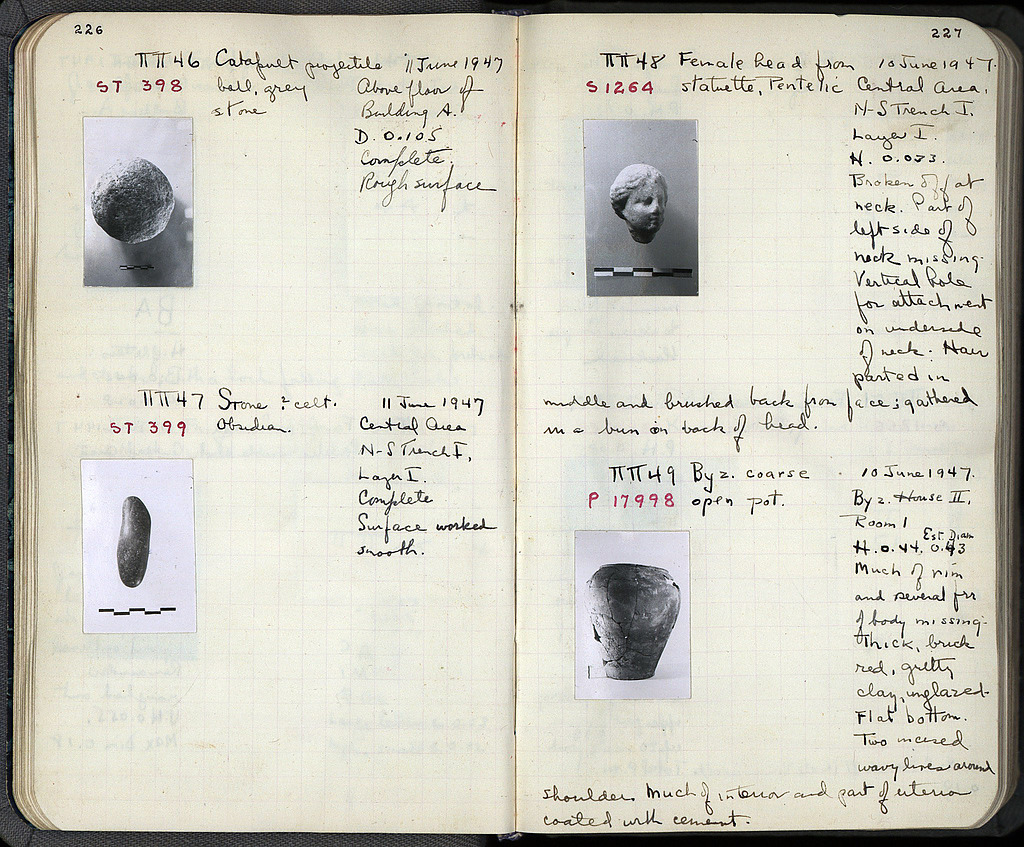 226
ΠΠ46 Catapult projectile 11 June 1947
ST 398 ball, grey Above floor of
stone Building A.
D. 0.105
Complete.
Rough surface
ΠΠ47 Stone ? celt. 11 June 1947
ST 399 Obsidian. Central Area
N-S Trench I,
Layer I.
Complete
Surface worked
smooth.
227
ΠΠ48 Female head from 10 June 1947.
S 1264 statuette, Pentelic Central Area,
N-S Trench I.
Layer I.
H. 0.033.
Broken off at
neck. Part of
left side of
neck missing.
Vertical hole
for attachment
on underside
of neck. Hair
parted in
middle and brushed back from face; gathered
in a bun on back of head.
ΠΠ49 Byz. coarse 10 June 1947.
P 17998 open pot. Byz. House II,
Room 1
Est. Diam
H. 0.44. 0.43
Much of rim
and several frr
of body missing.
Thick, brick
red, gritty
clay, unglazed.
Flat bottom.
Two incised
wavy lines around
shoulder. Much of interior and part of exterior
coated with cement.